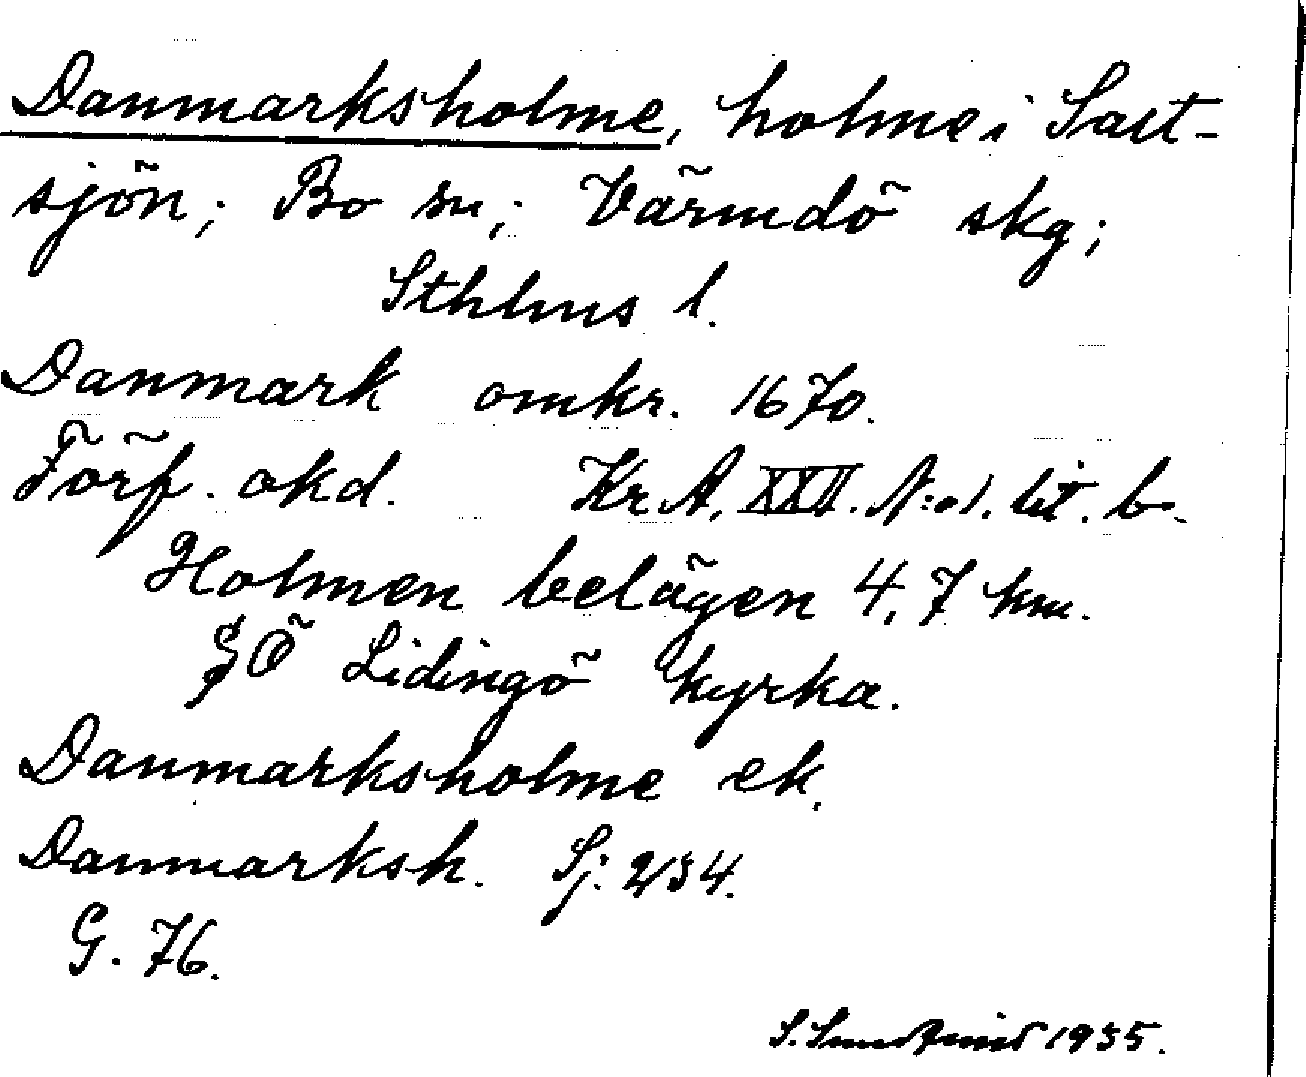 Danmarksholme, holme i Salt-
sjön; Bo sn; Värmdö skg;
Sthlms l.
Danmark omkr. 1670.
Förf. okd. Kr A, XXII. N:o 1. lit. b.
Holmen belägen 4,7 km.
SÖ Lidingö kyrka.
Danmarksholme ek.
Danmarksh. Sj. 234.
G. 76.
S. 1935.